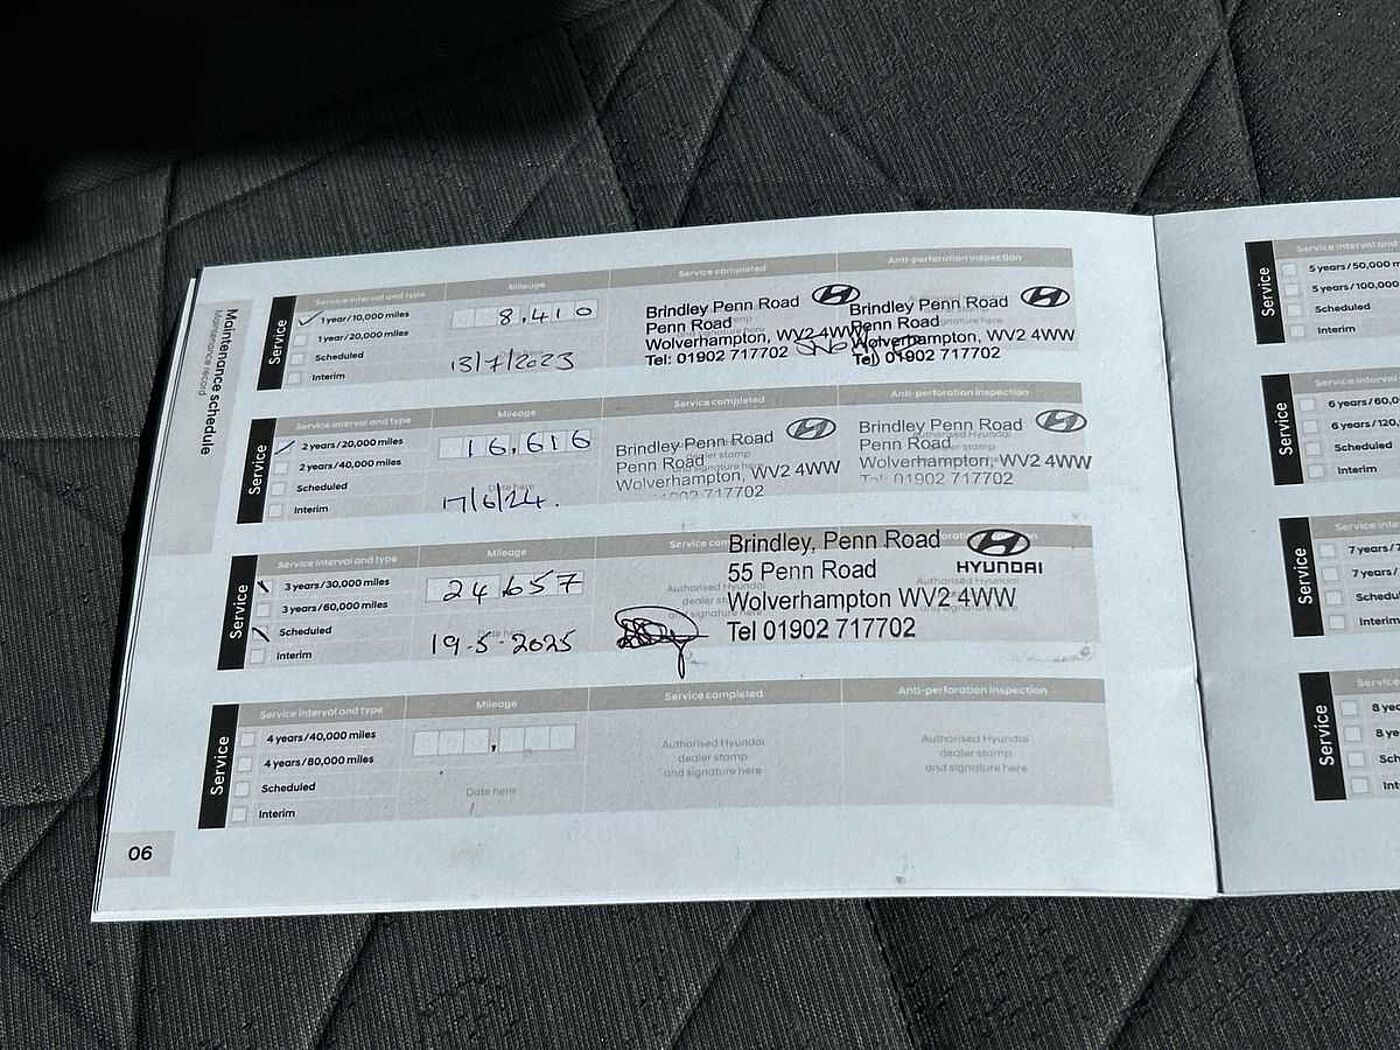 Maintenance schedule
Maintenance record
Service
Service interval and type
Mileage
Service completed
Anti-perforation inspection
1 year/10,000 miles
1 year/20,000 miles
Scheduled
Interim
8,410
13/7/2023
Brindley Penn Road
Penn Road
Wolverhampton, WV2 4WW
Tel: 01902 717702
Brindley Penn Road
Penn Road
Wolverhampton, WV2 4WW
Tel: 01902 717702
Service
Service interval and type
Mileage
Service completed
Anti-perforation inspection
2 years/20,000 miles
2 years/40,000 miles
Scheduled
Interim
16,616
Date here
17/6/24.
Brindley Penn Road
Penn Road
Wolverhampton, WV2 4WW
01902 717702
Brindley Penn Road
Penn Road
Wolverhampton, WV2 4WW
Tel: 01902 717702
Service
Service interval and type
Mileage
Service com
3 years/30,000 miles
3 years/60,000 miles
Scheduled
Interim
24,657
Date here
19-5-2025
Authorised Hyundai
dealer st
signature here
Brindley, Penn Road
55 Penn Road
Wolverhampton WV2 4WW
Tel 01902 717702
HYUNDAI
Authorised Hyundai
Service
Service interval and type
Mileage
Service completed
Anti-perforation inspection
4 years/40,000 miles
4 years/80,000 miles
Scheduled
Interim
Date here
Authorised Hyundai
dealer stamp
and signature here
Authorised Hyundai
dealer stamp
and signature here
06
Service
Service interval and
5 years/50,000 m
5 years/100,000
Scheduled
Interim
Service
Service interval
6 years/60,0
6 years/120,
Scheduled
Interim
Service
Service inte
7 years/7
7 years/
Schedu
Interim
Service
Servic
8 yea
8 ye
Sch
Int